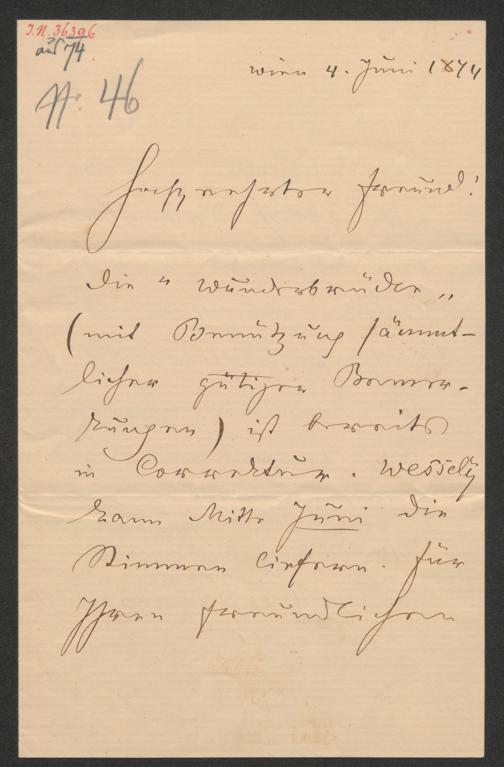 J.N. 36396
aus 74
No. 46
Wien 4. Juni 1874
Hochgeehrter Freund!
Die „Wunderbrüder„
(mit Benützung sämmt-
licher gütigen Bemer-
kungen) ist bereits
in Correktur. Wessely
kann Mitte Juni die
Stimmen liefern. Für
Ihren freundlichen